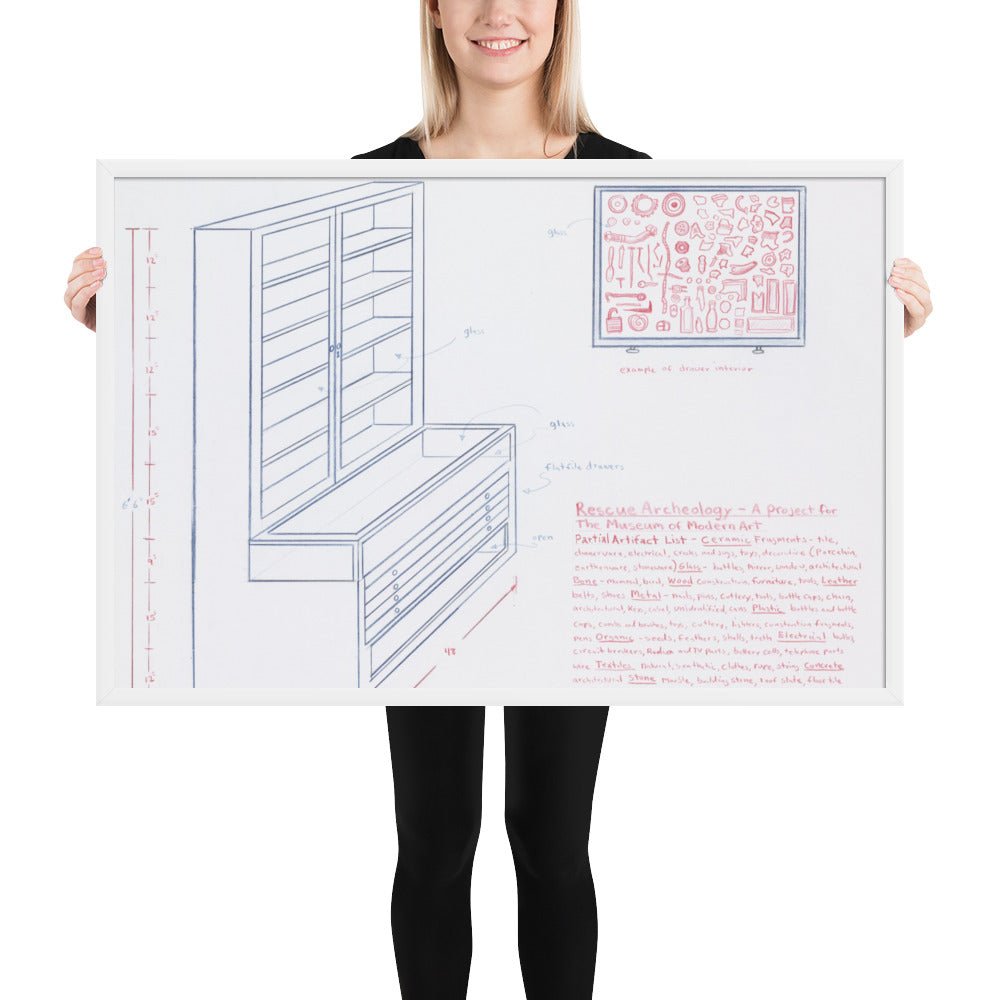 12"
12"
12"
15"
6' 6"
15"
9"
15"
12"
48
glass
glass
flatfile drawers
open
glass
example of drawer interior
Rescue Archeology - A project for
The Museum of Modern Art
Partial Artifact List - Ceramic Fragments - tile,
dinnerware, electrical, crocks and jugs, toys, decorative (Porcelain,
Earthenware, stoneware) Glass - bottles, mirror, window, architectural
Bone - mammal, bird, Wood construction, furniture, tools, Leather
belts, shoes Metal - nails, pins, cutlery, tools, bottle caps, chain,
architectural, keys, coins, unidentified, cans Plastic bottles and bottle
caps, combs and brushes, toys, cutlery, lighters, construction fragments,
pens Organic - seeds, feathers, shells, teeth Electrical bulbs,
circuit breakers, Radio and TV parts, battery cells, telephone parts
wire Textiles natural, synthetic, clothes, rope, string Concrete
architectural Stone marble, building stone, roof slate, floor tile